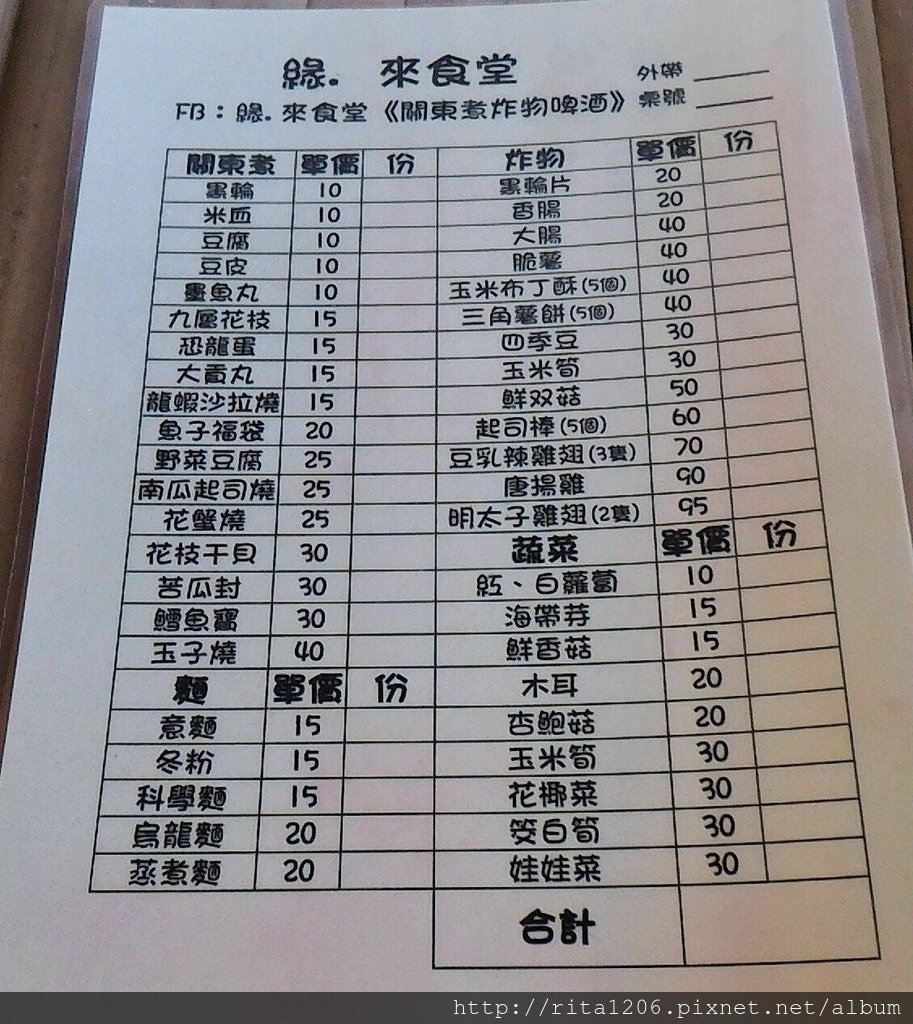 緣. 來食堂
外帶
FB：緣. 來食堂《關東煮炸物啤酒》
桌號
關東煮 單價 份 炸物 單價 份
黑輪 10 黑輪片 20
米血 10 香腸 20
豆腐 10 大腸 40
豆皮 10 脆薯 40
墨魚丸 10 玉米布丁酥(5個) 40
九層花枝 15 三角薯餅(5個) 40
恐龍蛋 15 四季豆 30
大貢丸 15 玉米筍 30
龍蝦沙拉燒 15 鮮双菇 50
魚子福袋 20 起司棒(5個) 60
野菜豆腐 25 豆乳辣雞翅(3隻) 70
南瓜起司燒 25 唐揚雞 90
花蟹燒 25 明太子雞翅(2隻) 95
花枝干貝 30 蔬菜 單價 份
苦瓜封 30 紅、白蘿蔔 10
鱈魚寶 30 海帶芽 15
玉子燒 40 鮮香菇 15
麵 單價 份 木耳 20
意麵 15 杏鮑菇 20
冬粉 15 玉米筍 30
科學麵 15 花椰菜 30
烏龍麵 20 筊白筍 30
蒸煮麵 20 娃娃菜 30
合計
http://rita1206.pixnet.net/album